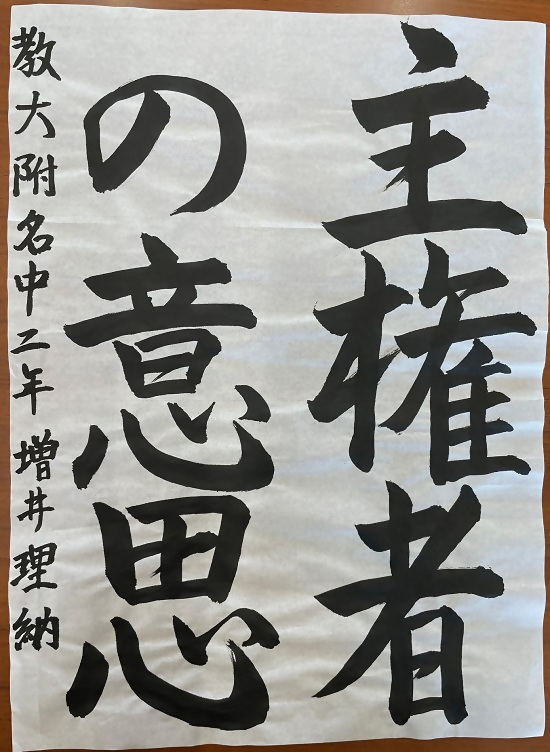 主権者
の意思
教大附名中二年 増井理納